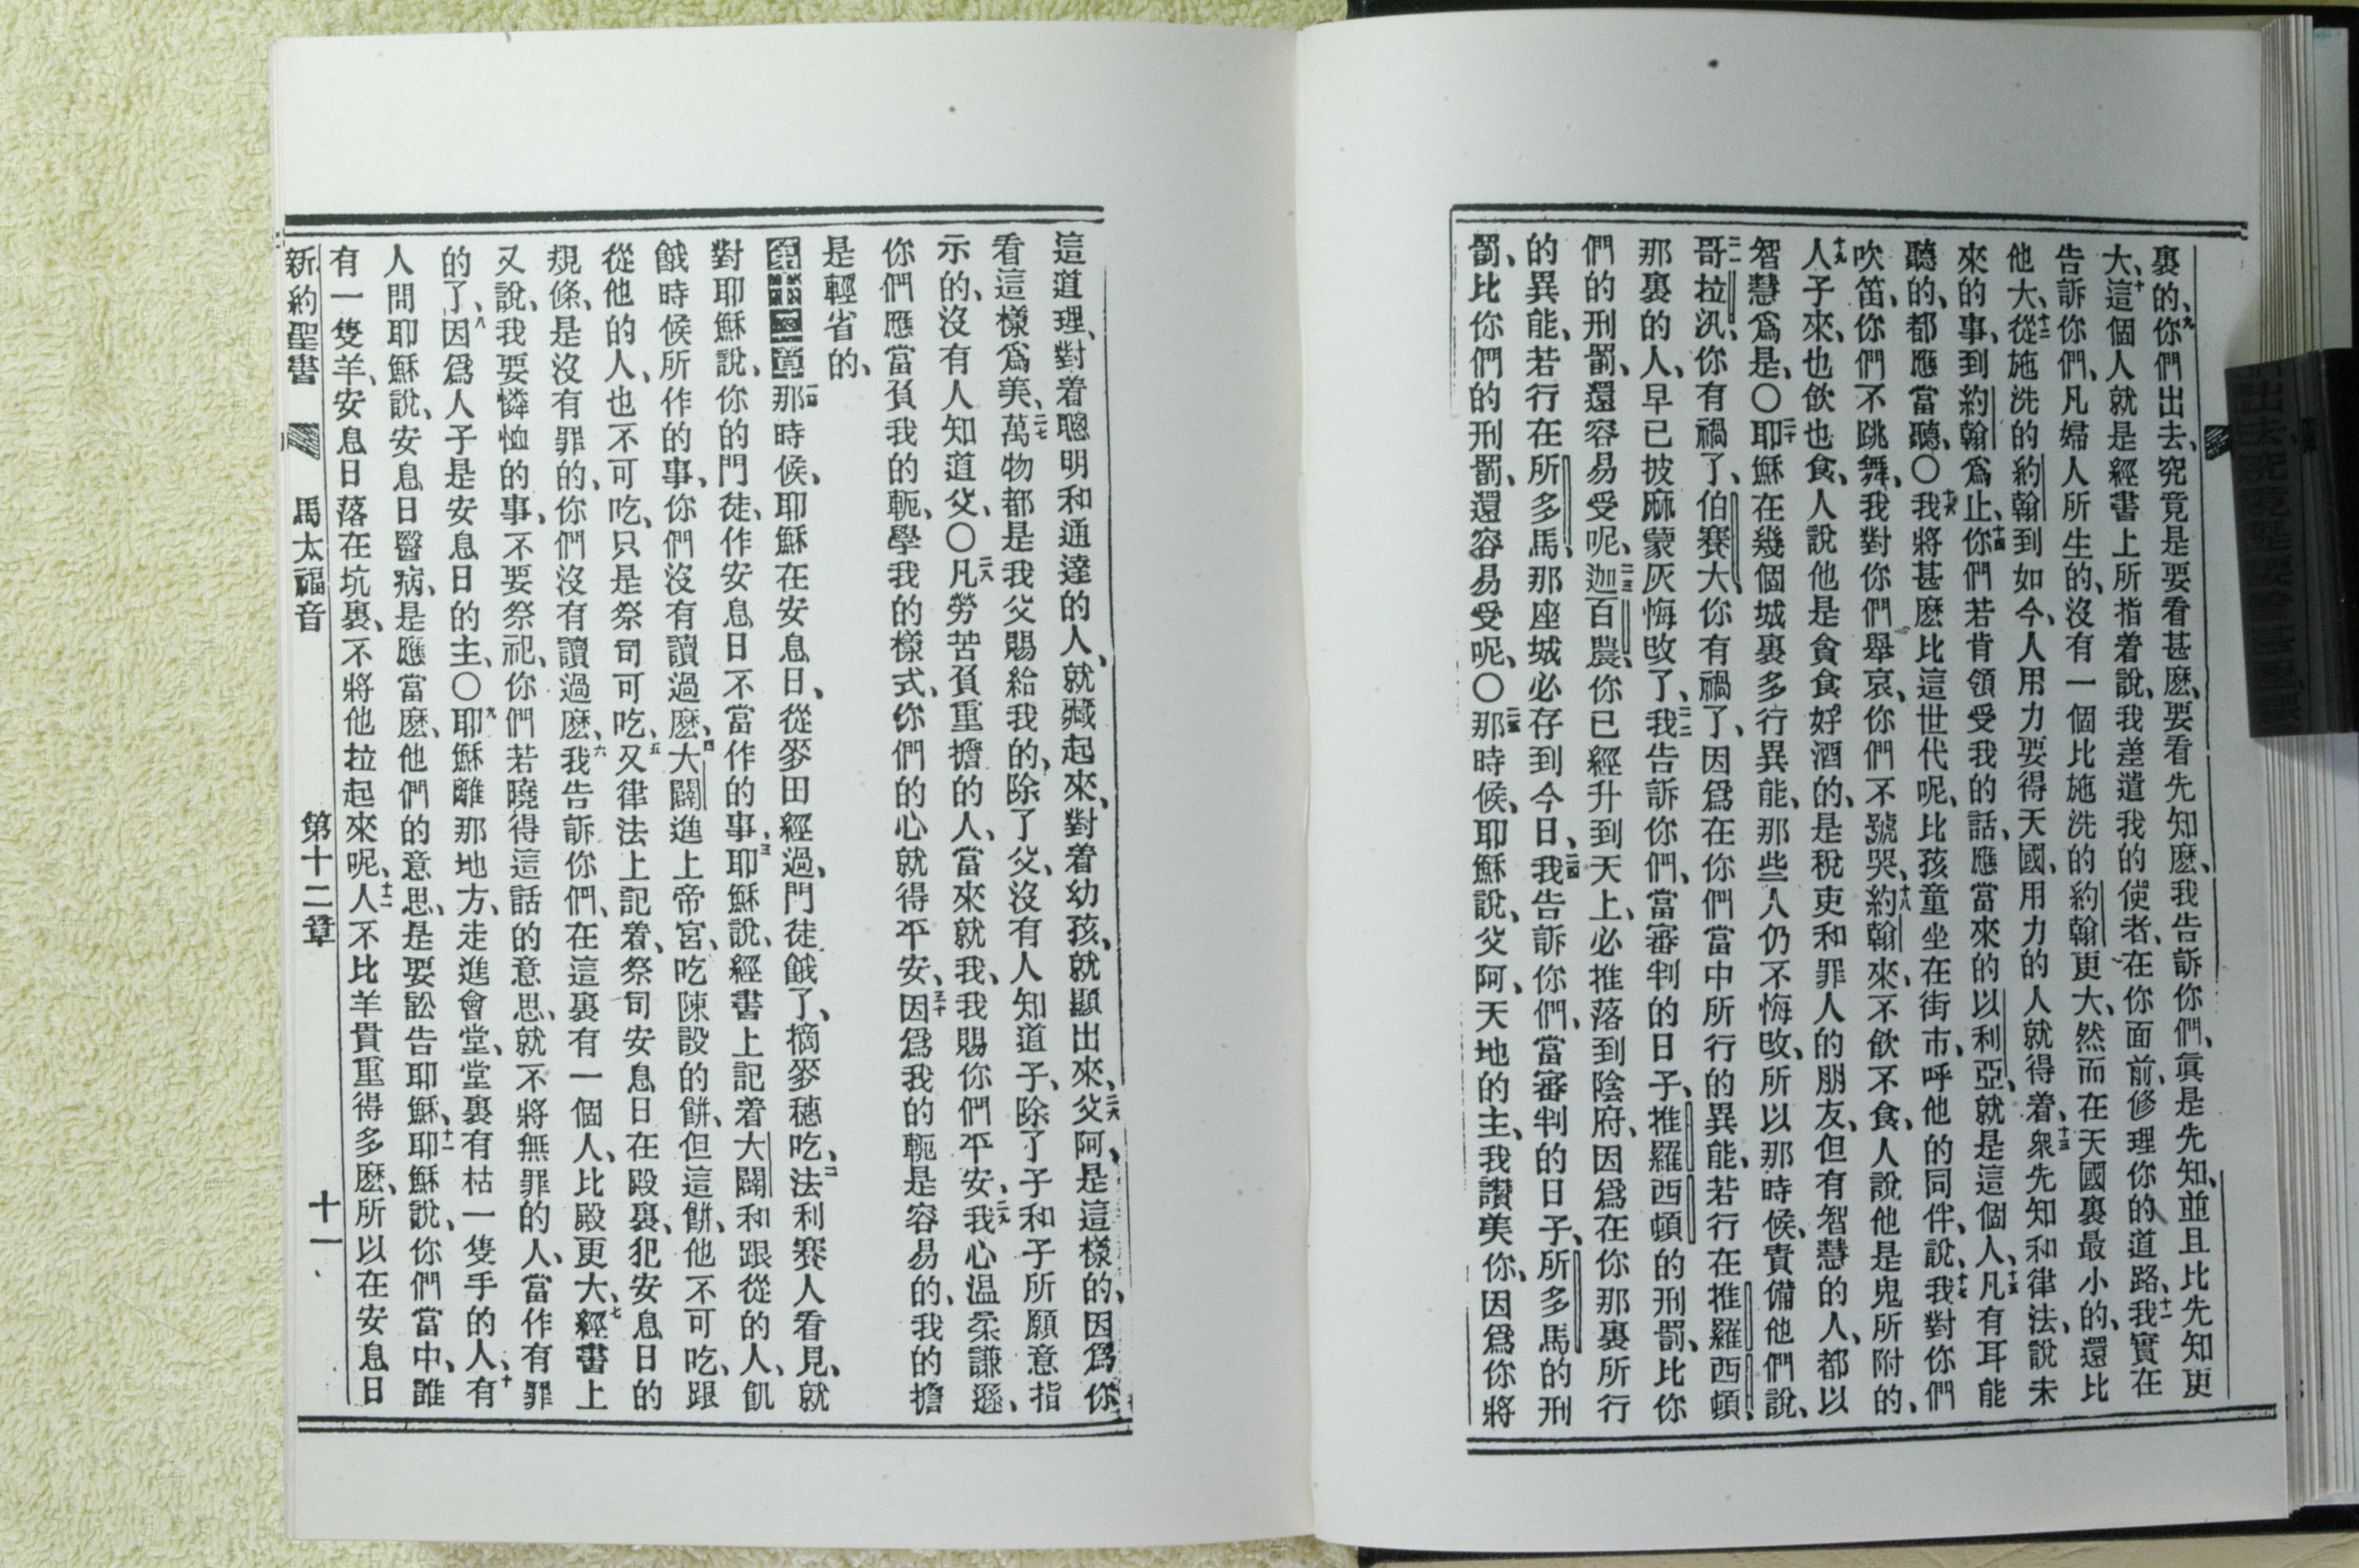 裏的、九你們出去、究竟是要看甚麽、要看先知麽、我告訴你們、眞是先知、並且比先知更
大、十這個人就是經書上所指着說、我差遣我的使者、在你面前、修理你的道路、十一我實在
告訴你們、凡婦人所生的、沒有一個比施洗的約翰更大、然而在天國裏最小的、還比
他大、十二從施洗的約翰到如今、人用力要得天國、用力的人就得着、十三衆先知和律法、說未
來的事、到約翰爲止、十四你們若肯領受我的話、應當來的以利亞、就是這個人、十五凡有耳能
聽的、都應當聽、〇十六我將甚麽比這世代呢、比孩童坐在街市、呼他的同伴、說、十七我對你們
吹笛、你們不跳舞、我對你們舉哀、你們不號哭、十八約翰來、不飲不食、人說他是鬼所附的、
十九人子來、也飲也食、人說他是貪食好酒的、是稅吏和罪人的朋友、但有智慧的人、都以
智慧爲是、〇二十耶穌在幾個城裏多行異能、那些人仍不悔改、所以那時候、責備他們說、
二一哥拉汛、你有禍了、伯賽大、你有禍了、因爲在你們當中所行的異能、若行在推羅西頓、
那裏的人、早已披麻蒙灰悔改了、二二我告訴你們、當審判的日子、推羅西頓的刑罰、比你
們的刑罰、還容易受呢、二三迦百農、你已經升到天上、必推落到陰府、因爲在你那裏所行
的異能、若行在所多馬、那座城必存到今日、二四我告訴你們、當審判的日子、所多馬的刑
罰、比你們的刑罰、還容易受呢、〇二五那時候、耶穌說、父阿、天地的主、我讚美你、因爲你將
這道理、對着聰明和通達的人、就藏起來、對着幼孩、就顯出來、二六父阿、是這樣的、因爲你
看這樣爲美、二七萬物都是我父賜給我的、除了父、沒有人知道子、除了子和子所願意指
示的、沒有人知道父、〇二八凡勞苦負重擔的人、當來就我、我賜你們平安、二九我心温柔謙遜、
你們應當負我的軛、學我的樣式、你們的心就得平安、三十因爲我的軛是容易的、我的擔
是輕省的、
第十二章一那時候、耶穌在安息日、從麥田經過、門徒餓了、摘麥穗吃、二法利賽人看見、就
對耶穌說、你的門徒、作安息日不當作的事、三耶穌說、經書上記着大闢和跟從的人、飢
餓時候所作的事、你們沒有讀過麽、四大闢進上帝宮、吃陳設的餅、但這餅、他不可吃、跟
從他的人、也不可吃、只是祭司可吃、五又律法上記着、祭司安息日在殿裏、犯安息日的
規條、是沒有罪的、你們沒有讀過麽、六我告訴你們、在這裏有一個人、比殿更大、七經書上
又說、我要憐恤的事、不要祭祀、你們若曉得這話的意思、就不將無罪的人、當作有罪
的了、八因爲人子是安息日的主、〇九耶穌離那地方、走進會堂、堂裏有枯一隻手的人、十有
人問耶穌說、安息日醫病、是應當麽、他們的意思、是要訟告耶穌、十一耶穌說、你們當中、誰
有一隻羊、安息日落在坑裏、不將他拉起來呢、十二人不比羊貴重得多麽、所以在安息日
新約聖書 馬太福音 第十二章 十一